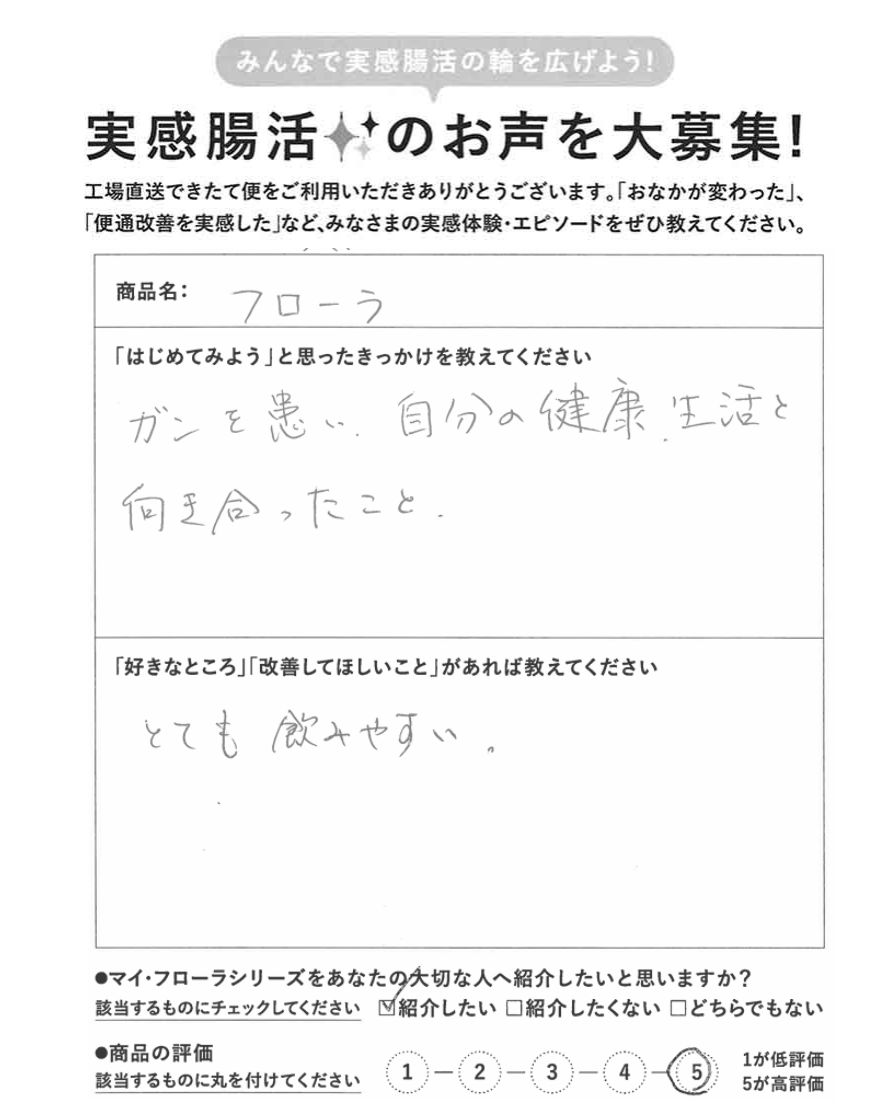 みんなで実感腸活の輪を広げよう!
実感腸活のお声を大募集!
工場直送できたて便をご利用いただきありがとうございます。「おなかが変わった」、
「便通改善を実感した」など、みなさまの実感体験・エピソードをぜひ教えてください。
商品名: フローラ
「はじめてみよう」と思ったきっかけを教えてください
ガンを患い、自分の健康、生活と
向き合ったこと.
「好きなところ」「改善してほしいこと」があれば教えてください
とても飲みやすい。
●マイ・フローラシリーズをあなたの大切な人へ紹介したいと思いますか?
該当するものにチェックしてください ☑紹介したい □紹介したくない □どちらでもない
●商品の評価
該当するものに丸を付けてください 1 — 2 — 3 — 4 — 5
1が低評価
5が高評価